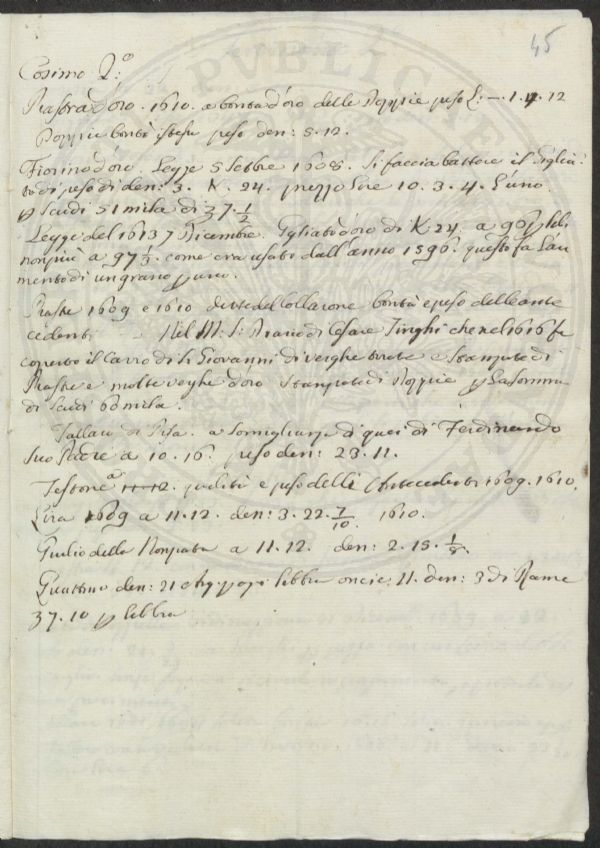 45
Cosimo 2.o:
Piastra d'oro. 1610. a bontà d'oro delle Doppie peso L: —. 1. 4. 12
Doppie bontà istessa peso den: 5. 12.
Fiorino d'oro. Legge 5 Settbre 1608. Si faccia battere il Giglia:
to di peso di den: 3. K. 24. prezzo Lire 10. 3. 4. l'uno
p Scudi 51 mila di 37. 1/2
Legge del 1613 7 Dicembre. Gigliato d'oro di K 24. a 96 p libb
non più a 97 1/2 come era usato dall'anno 1596. questo fa l'au
mento di un grano p uno.
Piastre 1609 e 1610 dette del Collarone bontà e peso delle ante
cedenti. Nel M: S: Diario di Cesare Tinghi che nel 1616 fu
coperto il Carro di S. Giovanni di verghe e Stampate di
Piastre e molte verghe d'oro Stampate di Doppie p la Somma
di Scudi 60 mila.
Tallaro di Pisa. a Somiglianza di quei di Ferdinando
Suo Padre a 10. 16. peso den: 23. 11.
Testone a 11. 12. e peso delli Antecedenti 1609. 1610.
Lira 1609 a 11. 12. den: 3. 22. 7/10. 1610.
Giulio della a 11. 12. den: 2. 15. 1/8.
Quattrino den: 21 libbra oncie: 11. den: 3 di Rame
37. 10 p libbra
PVBLICAE